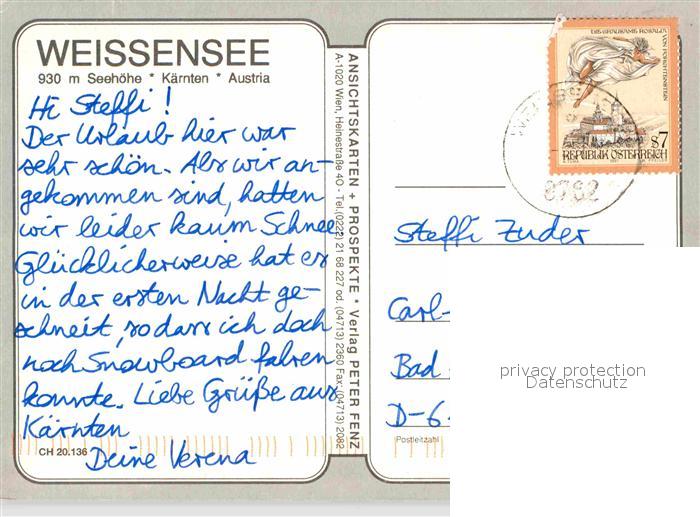 WEISSENSEE
930 m Seehöhe * Kärnten * Austria
Hi Steffi!
Der Urlaub hier war
sehr schön. Als wir an-
gekommen sind, hatten
wir leider kaum Schnee.
Glücklicherweise hat es
in der ersten Nacht ge-
schneit, so dass ich doch
noch Snowboard fahren
konnte. Liebe Grüße aus
Kärnten
Deine Verena
CH 20.136
ANSICHTSKARTEN + PROSPEKTE * Verlag PETER FENZ
A-1020 Wien, Heinestraße 40 - Tel. (0222) 21 68 227 od. (04713) 2360 Fax: (04713) 2082
DIE GRAUSAME ROSALIA
VON FORCHTENSTEIN
S7
REPUBLIK ÖSTERREICH
Steffi Zuder
Carl-
Bad
D-6
Postleitzahl
privacy protection
Datenschutz